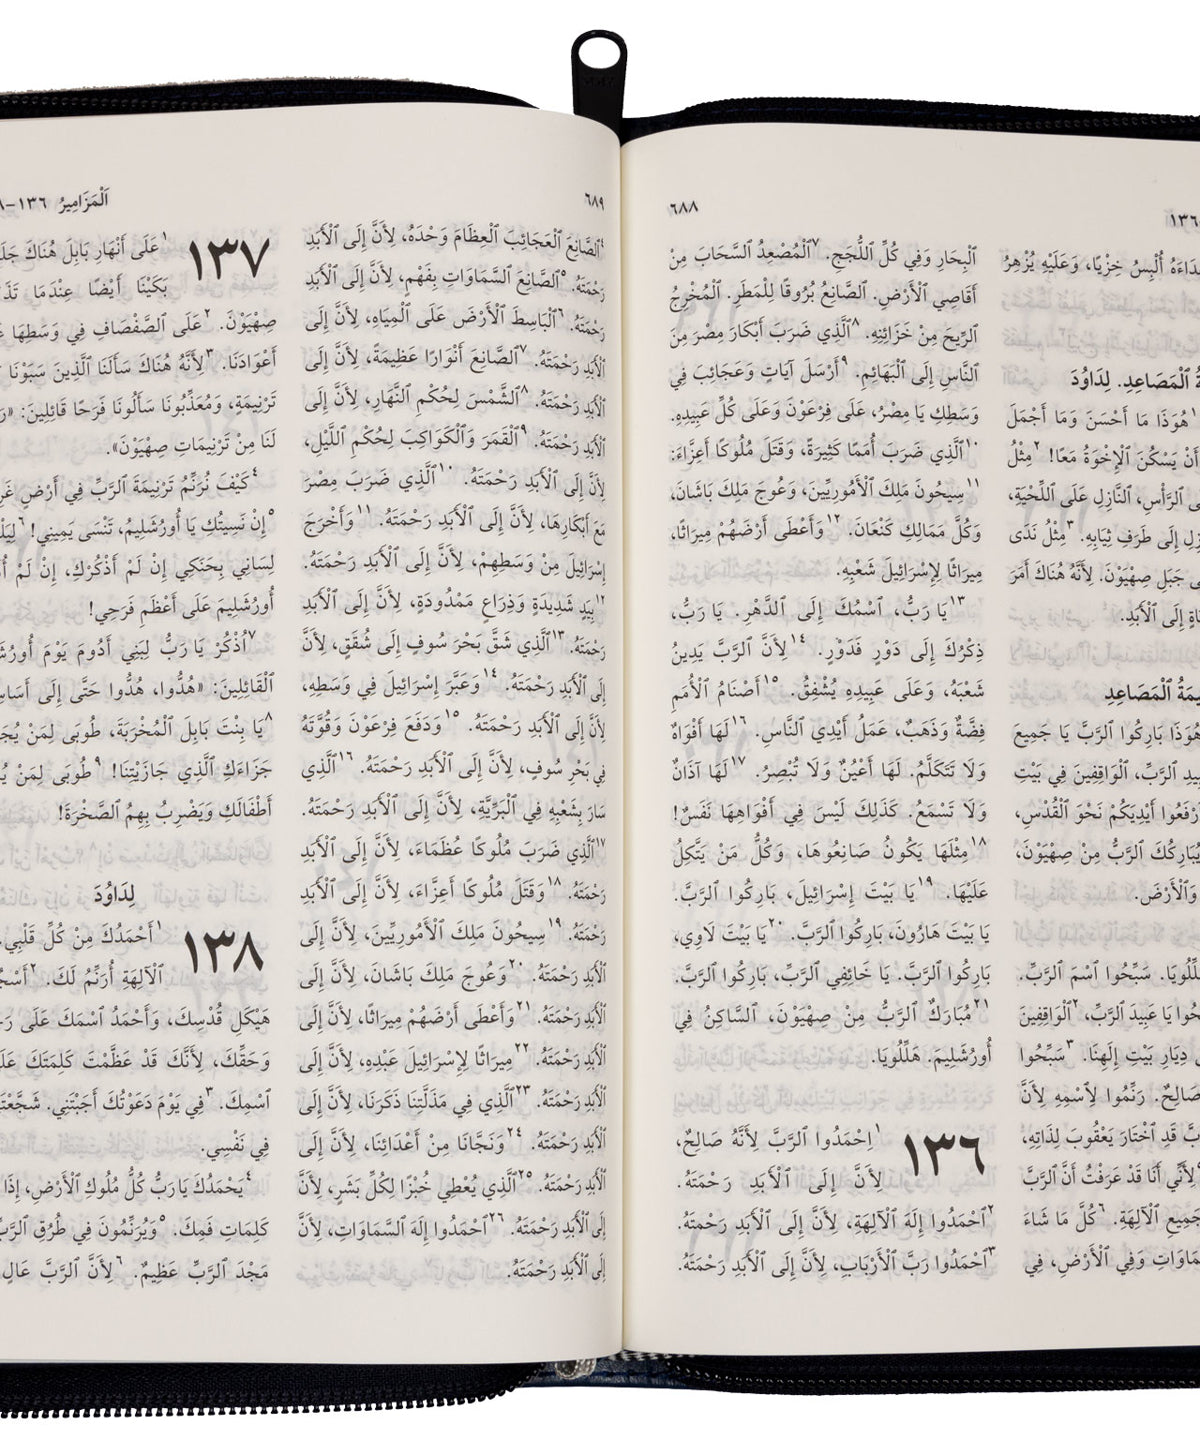 ١٣٦
أُلْبِسُ خِزْيًا، وَعَلَيْهِ يُزْهِرُ
ٱلْمَصَاعِدِ. لِدَاوُدَ
١هُوَذَا مَا أَحْسَنَ وَمَا أَجْمَلَ
أَنْ يَسْكُنَ ٱلْإِخْوَةُ مَعًا! ٢مِثْلُ
ٱلرَّأْسِ، ٱلنَّازِلِ عَلَى ٱللِّحْيَةِ،
إِلَى طَرَفِ ثِيَابِهِ. ٣مِثْلُ نَدَى
جَبَلِ صِهْيَوْنَ. لِأَنَّهُ هُنَاكَ أَمَرَ
إِلَى ٱلْأَبَدِ.
ٱلْمَصَاعِدِ
هُوَذَا بَارِكُوا ٱلرَّبَّ يَا جَمِيعَ
ٱلرَّبِّ، ٱلْوَاقِفِينَ فِي بَيْتِ
أَيْدِيَكُمْ نَحْوَ ٱلْقُدْسِ،
يُبَارِكُكَ ٱلرَّبُّ مِنْ صِهْيَوْنَ،
وَٱلْأَرْضَ.
سَبِّحُوا ٱسْمَ ٱلرَّبِّ.
يَا عَبِيدَ ٱلرَّبِّ، ٢ٱلْوَاقِفِينَ
دِيَارِ بَيْتِ إِلَهِنَا. ٣سَبِّحُوا
صَالِحٌ. رَنِّمُوا لِٱسْمِهِ لِأَنَّ
قَدِ ٱخْتَارَ يَعْقُوبَ لِذَاتِهِ،
لِأَنِّي أَنَا قَدْ عَرَفْتُ أَنَّ ٱلرَّبَّ
جَمِيعِ ٱلْآلِهَةِ. ٦كُلَّ مَا شَاءَ
وَفِي ٱلْأَرْضِ، فِي
٦٨٨
ٱلْبِحَارِ وَفِي كُلِّ ٱللُّجَجِ. ٧ٱلْمُصْعِدُ ٱلسَّحَابَ مِنْ
أَقَاصِي ٱلْأَرْضِ. ٱلصَّانِعُ بُرُوقًا لِلْمَطَرِ. ٱلْمُخْرِجُ
ٱلرِّيحَ مِنْ خَزَائِنِهِ. ٨ٱلَّذِي ضَرَبَ أَبْكَارَ مِصْرَ مِنَ
ٱلنَّاسِ إِلَى ٱلْبَهَائِمِ. ٩أَرْسَلَ آيَاتٍ وَعَجَائِبَ فِي
وَسَطِكِ يَا مِصْرُ، عَلَى فِرْعَوْنَ وَعَلَى كُلِّ عَبِيدِهِ.
١٠ٱلَّذِي ضَرَبَ أُمَمًا كَثِيرَةً، وَقَتَلَ مُلُوكًا أَعِزَّاءَ:
١١سِيحُونَ مَلِكَ ٱلْأَمُورِيِّينَ، وَعُوجَ مَلِكَ بَاشَانَ،
وَكُلَّ مَمَالِكِ كَنْعَانَ. ١٢وَأَعْطَى أَرْضَهُمْ مِيرَاثًا،
مِيرَاثًا لِإِسْرَائِيلَ شَعْبِهِ.
١٣يَا رَبُّ، ٱسْمُكَ إِلَى ٱلدَّهْرِ. يَا رَبُّ،
ذِكْرُكَ إِلَى دَوْرٍ فَدَوْرٍ. ١٤لِأَنَّ ٱلرَّبَّ يَدِينُ
شَعْبَهُ، وَعَلَى عَبِيدِهِ يُشْفِقُ. ١٥أَصْنَامُ ٱلْأُمَمِ
فِضَّةٌ وَذَهَبٌ، عَمَلُ أَيْدِي ٱلنَّاسِ. ١٦لَهَا أَفْوَاهٌ
وَلَا تَتَكَلَّمُ. لَهَا أَعْيُنٌ وَلَا تُبْصِرُ. ١٧لَهَا آذَانٌ
وَلَا تَسْمَعُ. كَذَلِكَ لَيْسَ فِي أَفْوَاهِهَا نَفَسٌ!
١٨مِثْلَهَا يَكُونُ صَانِعُوهَا، وَكُلُّ مَنْ يَتَّكِلُ
عَلَيْهَا. ١٩يَا بَيْتَ إِسْرَائِيلَ، بَارِكُوا ٱلرَّبَّ.
يَا بَيْتَ هَارُونَ، بَارِكُوا ٱلرَّبَّ. ٢٠يَا بَيْتَ لَاوِي،
بَارِكُوا ٱلرَّبَّ. يَا خَائِفِي ٱلرَّبِّ، بَارِكُوا ٱلرَّبَّ.
٢١مُبَارَكٌ ٱلرَّبُّ مِنْ صِهْيَوْنَ، ٱلسَّاكِنُ فِي
أُورُشَلِيمَ. هَلِّلُويَا.
١٣٦ ١اِحْمَدُوا ٱلرَّبَّ لِأَنَّهُ صَالِحٌ،
لِأَنَّ إِلَى ٱلْأَبَدِ رَحْمَتَهُ.
٢ٱحْمَدُوا إِلَهَ ٱلْآلِهَةِ، لِأَنَّ إِلَى ٱلْأَبَدِ رَحْمَتَهُ.
٣ٱحْمَدُوا رَبَّ ٱلْأَرْبَابِ، لِأَنَّ إِلَى ٱلْأَبَدِ رَحْمَتَهُ.
٦٨٩
٤ٱلصَّانِعَ ٱلْعَجَائِبَ ٱلْعِظَامَ وَحْدَهُ، لِأَنَّ إِلَى ٱلْأَبَدِ
رَحْمَتَهُ. ٥ٱلصَّانِعَ ٱلسَّمَاوَاتِ بِفَهْمٍ، لِأَنَّ إِلَى ٱلْأَبَدِ
رَحْمَتَهُ. ٦ٱلْبَاسِطَ ٱلْأَرْضَ عَلَى ٱلْمِيَاهِ، لِأَنَّ إِلَى
ٱلْأَبَدِ رَحْمَتَهُ. ٧ٱلصَّانِعَ أَنْوَارًا عَظِيمَةً، لِأَنَّ إِلَى
ٱلْأَبَدِ رَحْمَتَهُ. ٨ٱلشَّمْسَ لِحُكْمِ ٱلنَّهَارِ، لِأَنَّ إِلَى
ٱلْأَبَدِ رَحْمَتَهُ. ٩ٱلْقَمَرَ وَٱلْكَوَاكِبَ لِحُكْمِ ٱللَّيْلِ،
لِأَنَّ إِلَى ٱلْأَبَدِ رَحْمَتَهُ. ١٠ٱلَّذِي ضَرَبَ مِصْرَ
مَعَ أَبْكَارِهَا، لِأَنَّ إِلَى ٱلْأَبَدِ رَحْمَتَهُ. ١١وَأَخْرَجَ
إِسْرَائِيلَ مِنْ وَسَطِهِمْ، لِأَنَّ إِلَى ٱلْأَبَدِ رَحْمَتَهُ.
١٢بِيَدٍ شَدِيدَةٍ وَذِرَاعٍ مَمْدُودَةٍ، لِأَنَّ إِلَى ٱلْأَبَدِ
رَحْمَتَهُ. ١٣ٱلَّذِي شَقَّ بَحْرَ سُوفٍ إِلَى شُقَقٍ، لِأَنَّ
إِلَى ٱلْأَبَدِ رَحْمَتَهُ. ١٤وَعَبَّرَ إِسْرَائِيلَ فِي وَسَطِهِ،
لِأَنَّ إِلَى ٱلْأَبَدِ رَحْمَتَهُ. ١٥وَدَفَعَ فِرْعَوْنَ وَقُوَّتَهُ
فِي بَحْرِ سُوفٍ، لِأَنَّ إِلَى ٱلْأَبَدِ رَحْمَتَهُ. ١٦ٱلَّذِي
سَارَ بِشَعْبِهِ فِي ٱلْبَرِّيَّةِ، لِأَنَّ إِلَى ٱلْأَبَدِ رَحْمَتَهُ.
١٧ٱلَّذِي ضَرَبَ مُلُوكًا عُظَمَاءَ، لِأَنَّ إِلَى ٱلْأَبَدِ
رَحْمَتَهُ. ١٨وَقَتَلَ مُلُوكًا أَعِزَّاءَ، لِأَنَّ إِلَى ٱلْأَبَدِ
رَحْمَتَهُ. ١٩سِيحُونَ مَلِكَ ٱلْأَمُورِيِّينَ، لِأَنَّ إِلَى
ٱلْأَبَدِ رَحْمَتَهُ. ٢٠وَعُوجَ مَلِكَ بَاشَانَ، لِأَنَّ إِلَى
ٱلْأَبَدِ رَحْمَتَهُ. ٢١وَأَعْطَى أَرْضَهُمْ مِيرَاثًا، لِأَنَّ إِلَى
ٱلْأَبَدِ رَحْمَتَهُ. ٢٢مِيرَاثًا لِإِسْرَائِيلَ عَبْدِهِ، لِأَنَّ إِلَى
ٱلْأَبَدِ رَحْمَتَهُ. ٢٣ٱلَّذِي فِي مَذَلَّتِنَا ذَكَرَنَا، لِأَنَّ إِلَى
ٱلْأَبَدِ رَحْمَتَهُ. ٢٤وَنَجَّانَا مِنْ أَعْدَائِنَا، لِأَنَّ إِلَى
ٱلْأَبَدِ رَحْمَتَهُ. ٢٥ٱلَّذِي يُعْطِي خُبْزًا لِكُلِّ بَشَرٍ، لِأَنَّ
إِلَى ٱلْأَبَدِ رَحْمَتَهُ. ٢٦ٱحْمَدُوا إِلَهَ ٱلسَّمَاوَاتِ، لِأَنَّ
إِلَى ٱلْأَبَدِ رَحْمَتَهُ.
اَلْمَزَامِيرُ ١٣٦–
١٣٧ ١عَلَى أَنْهَارِ بَابِلَ هُنَاكَ
بَكَيْنَا أَيْضًا عِنْدَمَا
صِهْيَوْنَ. ٢عَلَى ٱلصَّفْصَافِ فِي وَسَطِهَا
أَعْوَادَنَا. ٣لِأَنَّهُ هُنَاكَ سَأَلَنَا ٱلَّذِينَ سَبَوْنَا
تَرْنِيمَةٍ، وَمُعَذِّبُونَا سَأَلُونَا فَرَحًا قَائِلِينَ:
لَنَا مِنْ تَرْنِيمَاتِ صِهْيَوْنَ».
٤كَيْفَ نُرَنِّمُ تَرْنِيمَةَ ٱلرَّبِّ فِي أَرْضٍ
٥إِنْ نَسِيتُكِ يَا أُورُشَلِيمُ، تَنْسَى يَمِينِي!
لِسَانِي بِحَنَكِي إِنْ لَمْ أَذْكُرْكِ، إِنْ لَمْ
أُورُشَلِيمَ عَلَى أَعْظَمِ فَرَحِي!
٧اُذْكُرْ يَا رَبُّ لِبَنِي أَدُومَ يَوْمَ
ٱلْقَائِلِينَ: «هُدُّوا، هُدُّوا حَتَّى إِلَى
٨يَا بِنْتَ بَابِلَ ٱلْمُخْرَبَةَ، طُوبَى لِمَنْ
جَزَاءَكِ ٱلَّذِي جَازَيْتِنَا! ٩طُوبَى لِمَنْ
أَطْفَالَكِ وَيَضْرِبُ بِهِمُ ٱلصَّخْرَةَ!
لِدَاوُدَ
١٣٨ ١أَحْمَدُكَ مِنْ كُلِّ قَلْبِي.
ٱلْآلِهَةِ أُرَنِّمُ لَكَ.
هَيْكَلِ قُدْسِكَ، وَأَحْمَدُ ٱسْمَكَ عَلَى
وَحَقِّكَ، لِأَنَّكَ قَدْ عَظَّمْتَ كَلِمَتَكَ
ٱسْمِكَ. ٣فِي يَوْمَ دَعَوْتُكَ أَجَبْتَنِي.
فِي نَفْسِي.
٤يَحْمَدُكَ يَا رَبُّ كُلُّ مُلُوكِ ٱلْأَرْضِ، إِذَا
كَلِمَاتِ فَمِكَ. ٥وَيُرَنِّمُونَ فِي طُرُقِ
مَجْدَ ٱلرَّبِّ عَظِيمٌ. ٦لِأَنَّ ٱلرَّبَّ عَالٍ